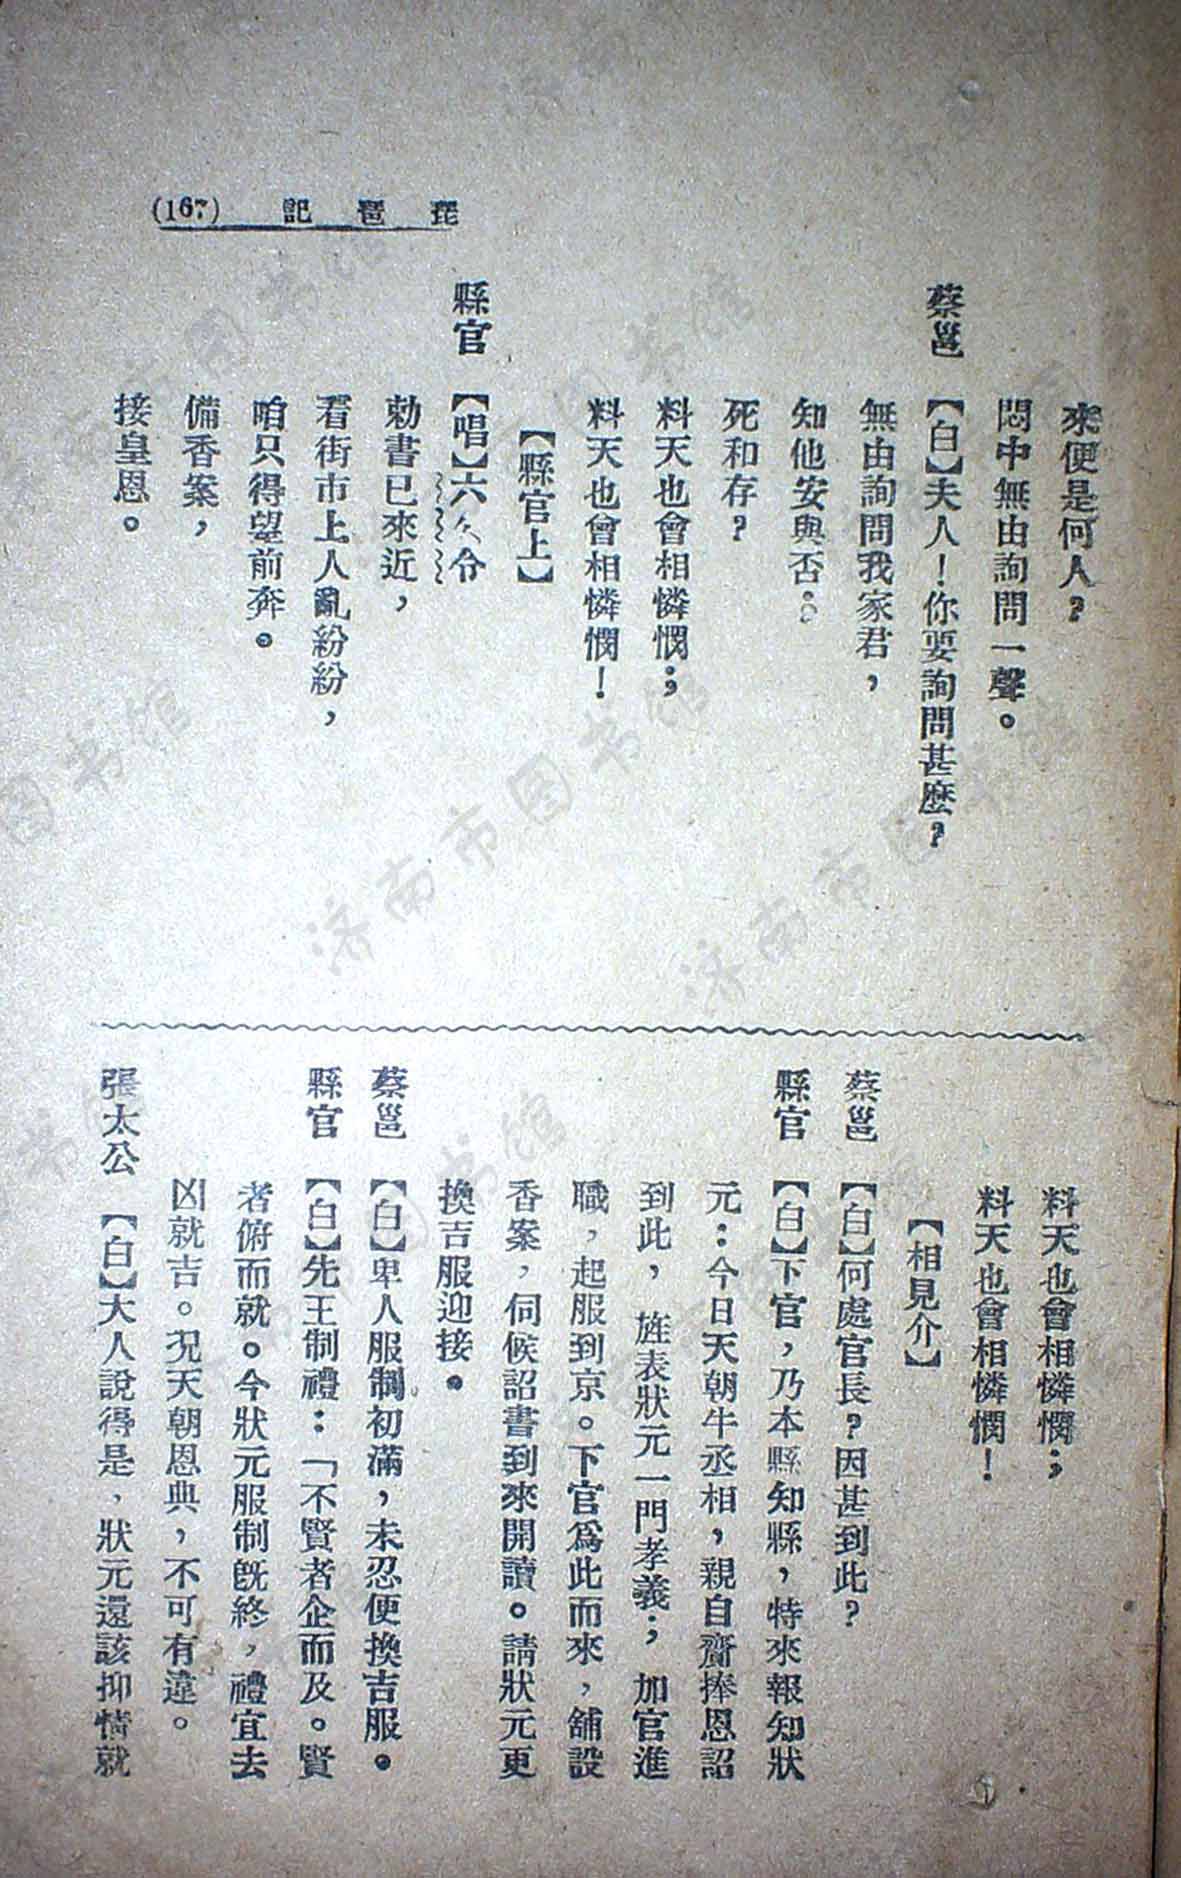 (167) 琵琶記
來便是何人？
悶中無由詢問一聲。
蔡邕【白】夫人！你要詢問甚麼？
無由詢問我家君，
知他安與否：
死和存？
料天也會相憐憫；
料天也會相憐憫！
【縣官上】
縣官【唱】六么令
勅書已來近，
看街市上人亂紛紛，
咱只得望前奔。
備香案，
接皇恩。
料天也會相憐憫；
料天也會相憐憫！
【相見介】
蔡邕【白】何處官長？因甚到此？
縣官【白】下官，乃本縣知縣，特來報知狀
元：今日天朝牛丞相，親自齎捧恩詔
到此，旌表狀元一門孝義；加官進
職，起服到京。下官爲此而來，舖設
香案，伺候詔書到來開讀。請狀元更
換吉服迎接。
蔡邕【白】卑人服制初滿，未忍便換吉服。
縣官【白】先王制禮：「不賢者企而及。賢
者俯而就。今狀元服制旣終，禮宜去
凶就吉。况天朝恩典，不可有違。
張太公【白】大人說得是，狀元還該抑情就
济南市图书馆